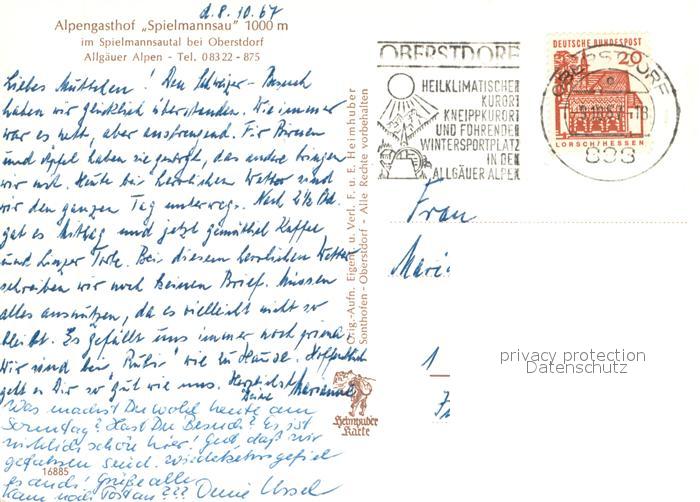 d. 8. 10. 67
Alpengasthof „Spielmannsau" 1000 m
im Spielmannsautal bei Oberstdorf
Allgäuer Alpen - Tel. 08322 - 875
Liebes Muttchen! Den Schwiger-Besuch
haben wir glücklich überstanden. Wie immer
war es nett, aber anstrengend. Für Birnen
und Äpfel haben sie gesorgt, das andere bringen
wir mit. Heute bei herrlichem Wetter sind
wir den ganzen Tag unterwegs. Nach 2½ Std.
gab es Mittag und jetzt gemütlich Kaffee
und Linzer Torte. Bei diesem herrlichen Wetter
schreiben wir noch keinen Brief. Müssen
alles ausnützen, da es vielleicht nicht so
bleibt. Es gefällt uns immer noch prima.
Wir sind bei „Rubis" wie zu Hause. Hoffentlich
geht es Dir so gut wie uns. Herzlichst
Deine Marianne
Was machst Du wohl heute am
Sonntag? Hast Du Besuch? Es ist
wirklich schön hier! Gut, daß wir
gefahren sind.
es auch! Grüße alle
Deine Ursel
16885
Orig.-Aufn. Eigent. u. Verl. F. u. E. Heimhuber
Sonthofen - Oberstdorf - Alle Rechte vorbehalten
Heimhuber
Karte
OBERSTDORF
HEILKLIMATISCHER
KURORT
KNEIPPKURORT
UND FÜHRENDER
WINTERSPORTPLATZ
IN DEN
ALLGÄUER ALPEN
DEUTSCHE BUNDESPOST
20
LORSCH/HESSEN
OBERSTDORF
898
Frau
Mari
1
privacy protection
Datenschutz